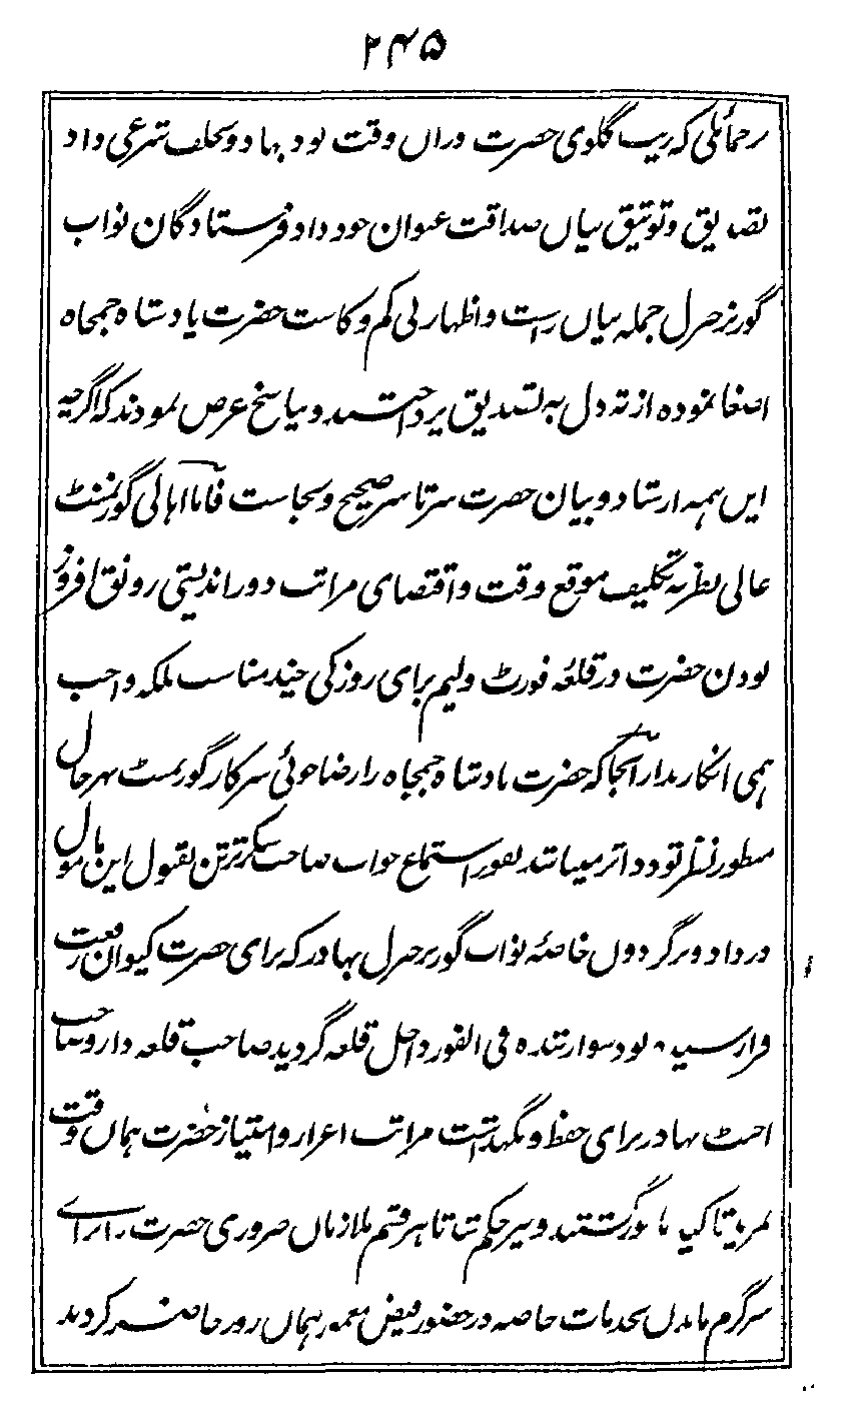 ۲۴۵
رحمائلی که زیب گلوی حضرت دران وقت بود بهاد و بحلف شرعی داد
تصدیق و توثیق بیان صداقت عنوان خود داد فرستادگان نواب
گورنر جنرل جمله بیان راست و اظهار بی کم و کاست حضرت بادشاه جمجاه
اصغا نموده از ته دل به تصدیق پرداختند و بپاسخ عرض نمودند که اگرچه
این همه ارشاد و بیان حضرت سرتا سر صحیح و بجاست فاما اهالی گورنمنٹ
عالی نظر به تکلیف موقع وقت و اقتضای مراتب دور اندیشی رونق افروز
بودن حضرت در قلعهٔ فورٹ ولیم برای روزکی چند مناسب بلکه واجب
همی انگارند از آنجا که حضرت بادشاه جمجاه را رضاجوئی سرکار گورنمنٹ بهرحال
منظور نظر تودد اثر میباشد بفور استماع جواب صاحب سکرترتن بقبول این
در داد و برگردون خاصهٔ نواب گورنر جنرل بهادر که برای حضرت کیوان رفعت
فرارسیده بود سوار شده فی الفور داخل قلعه گردید صاحب قلعه دار و صاحب
اجنٹ بهادر برای حفظ و نگهداشت مراتب اعزاز و امتیاز حضرت همان وقت
بمزید تاکید مامور گشتند و نیز حکم شد تا هر قسم ملازمان ضروری حضرت را برای
سرگرم ماندن بخدمات خاصه در حضور فیض معمور همان روز حاضر کردند